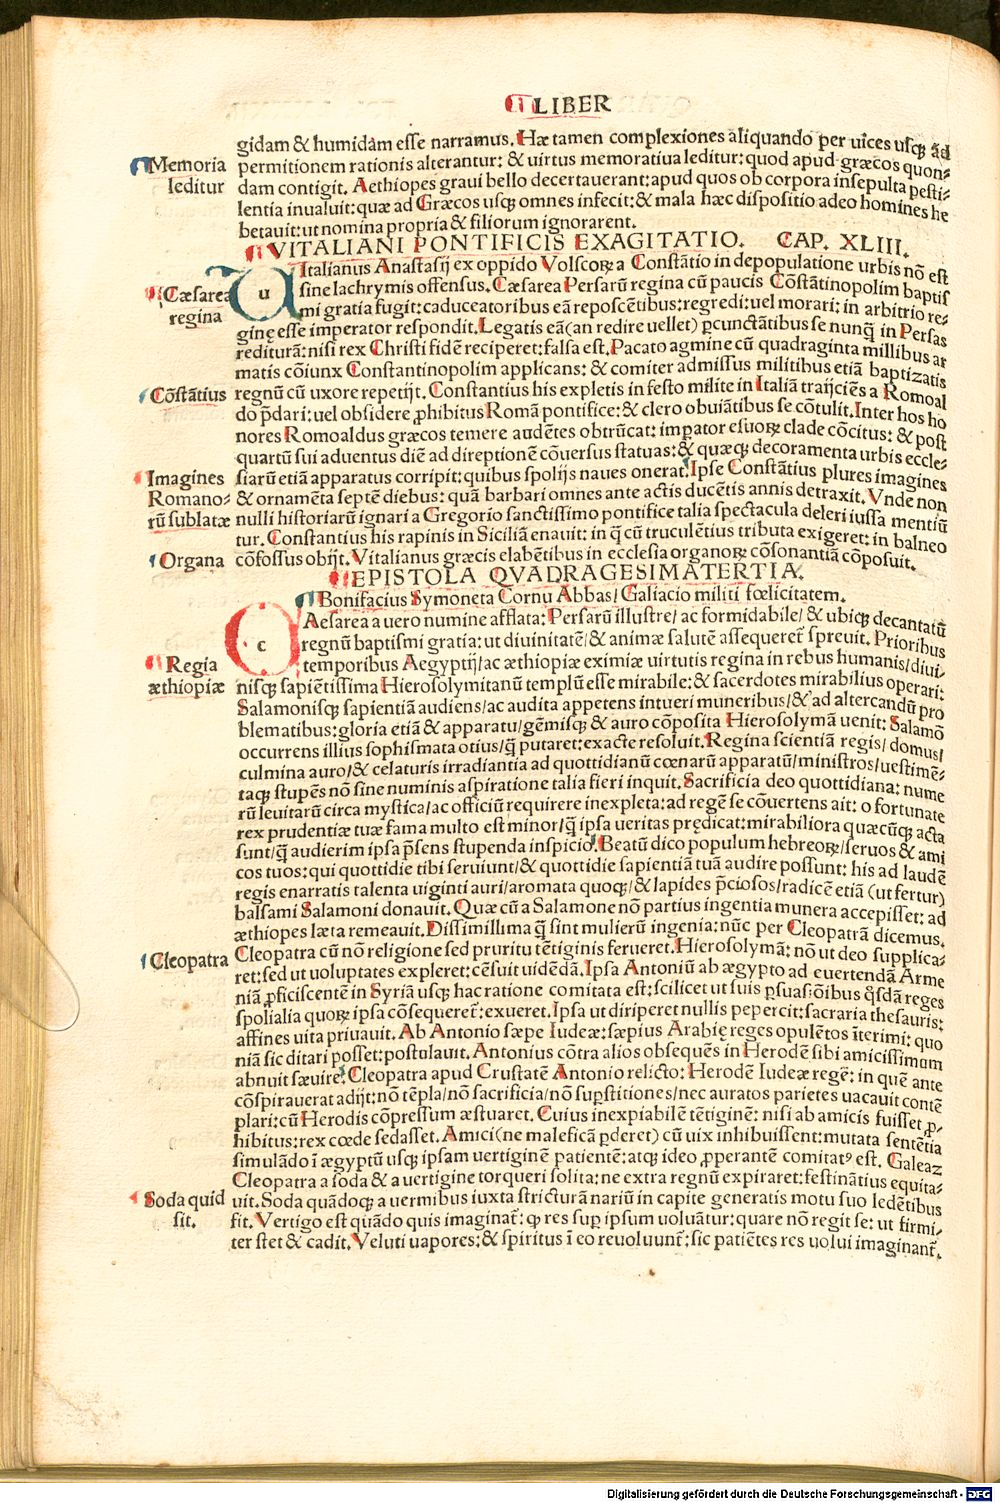 LIBER
gidam & humidam esse narramus. Hæ tamen complexiones aliquando per uices usqꝫ ad
Memoria
permitionem rationis alterantur: & uirtus memoratiua leditur: quod apud græcos quon-
leditur
dam contigit. Aethiopes graui bello decertauerant: apud quos ob corpora insepulta pesti-
lentia inualuit: quæ ad Græcos usqꝫ omnes infecit: & mala hæc dispositio adeo homines he
betauit: ut nomina propria & filiorum ignorarent.
VITALIANI PONTIFICIS EXAGITATIO. CAP. XLIII.
uItalianus Anastasij ex oppido Volscoꝝ a Constātio in depopulatione urbis nō est
Cæsarea
sine lachrymis offensus. Cæsarea Persarū regina cū paucis Cōstātinopolim baptis
regina
mi gratia fugit: caduceatoribus eā reposcētibus: regredi: uel morari: in arbitrio re-
ginę esse imperator respondit. Legatis eā (an redire uellet) ꝑcunctātibus se nunq̄ in Persas
rediturā: nisi rex Christi fidē reciperet: falsa est. Pacato agmine cū quadraginta millibus ar
matis cōiunx Constantinopolim applicans: & comiter admissus militibus etiā baptizatis
Cōstātius
regnū cū uxore repetijt. Constantius his expletis in festo milite in Italiā traijciēs a Romoal
do p̄dari: uel obsidere ꝓhibitus Romā pontifice: & clero obuiātibus se cōtulit. Inter hos ho
nores Romoaldus græcos temere audētes obtrūcat: imꝑator esuoꝝ clade cōcitus: & post
quartū sui aduentus diē ad direptionē cōuersus statuas: & quæqꝫ decoramenta urbis eccle-
Imagines
siarū etiā apparatus corripit: quibus spolijs naues onerat. Ipse Constātius plures imagines
Romano-
& ornamēta septē diebus: quā barbari omnes ante actis ducētis annis detraxit. Vnde non
rū sublatæ
nulli historiarū ignari a Gregorio sanctissimo pontifice talia spectacula deleri iussa mentiū
tur. Constantius his rapinis in Siciliā enauit: in q̄ cū truculētius tributa exigeret: in balneo
Organa
cōfossus obijt. Vitalianus græcis elabētibus in ecclesia organoꝝ cōsonantiā cōposuit.
EPISTOLA QVADRAGESIMATERTIA.
Bonifacius Symoneta Cornu Abbas/ Galiacio militi fœlicitatem.
cAesarea a uero numine afflata: Persarū illustre/ ac formidabile/ & ubiqꝫ decantatū
regnū baptismi gratia: ut diuinitatē/ & animæ salutē assequeret̃ spreuit. Prioribus
Regia
temporibus Aegyptij/ ac æthiopiæ eximiæ uirtutis regina in rebus humanis/ diui-
æthiopiæ
nisqꝫ sapiētissima Hierosolymitanū templū esse mirabile: & sacerdotes mirabilius operari:
Salamonisqꝫ sapientiā audiens/ ac audita appetens intueri muneribus/ & ad altercandū pro
blematibus: gloria etiā & apparatu/ gēmisqꝫ & auro cōposita Hierosolymā uenit: Salamō
occurrens illius sophismata otius/ q̄ putaret: exacte resoluit. Regina scientiā regis/ domus/
culmina auro/ & celaturis irradiantia ad quottidianū cœnarū apparatū/ ministros/ uestimē-
taqꝫ stupēs nō sine numinis aspiratione talia fieri inquit. Sacrificia deo quottidiana: nume
rū leuitarū circa mystica/ ac officiū requirere inexpleta: ad regē se cōuertens ait: o fortunate
rex prudentiæ tuæ fama multo est minor/ q̄ ipsa ueritas prędicat: mirabiliora quæcūqꝫ acta
sunt/ q̄ audierim ipsa p̄sens stupenda inspicio. Beatū dico populum hebreoꝝ/ seruos & ami
cos tuos: qui quottidie tibi seruiunt/ & quottidie sapientiā tuā audire possunt: his ad laudē
regis enarratis talenta uiginti auri/ aromata quoqꝫ/ & lapides p̄ciosos/ radicē etiā (ut fertur)
balsami Salamoni donauit. Quæ cū a Salamone nō partius ingentia munera accepisset: ad
æthiopes læta remeauit. Dissimillima q̄ sint mulierū ingenia: nūc per Cleopatrā dicemus.
Cleopatra
Cleopatra cū nō religione sed pruritu tētiginis ferueret. Hierosolymā: nō ut deo supplica-
ret: sed ut uoluptates expleret: cēsuit uidēdā. Ipsa Antoniū ab ægypto ad euertendā Arme
niā ꝓficiscentē in Syriā usqꝫ hac ratione comitata est: scilicet ut suis ꝑsuasiōibus q̄sdā reges
spolialia quoꝝ ipsa cōsequeret̃: exueret. Ipsa ut diriperet nullis pepercit: sacraria thesauris:
affines uita priuauit. Ab Antonio sæpe Iudeæ: sæpius Arabię reges opulētos īterimi: quo
niā sic ditari posset: postulauit. Antonius cōtra alios obsequēs in Herodē sibi amicissimam
abnuit sæuire. Cleopatra apud Crustatē Antonio relicto: Herodē Iudeæ regē: in quē ante
cōspirauerat adijt: nō tēpla/ nō sacrificia/ nō suꝑstitiones/ nec auratos parietes uacauit contē
plari: cū Herodis cōpressum æstuaret. Cuius inexpiabilē tētiginē: nisi ab amicis fuisset ꝓ-
hibitus: rex cœde sedasset. Amici (ne maleficā ꝑderet) cū uix inhibuissent: mutata sentētia
simulādo ī ægyptū usqꝫ ipsam uertiginē patientē: atqꝫ ideo ꝓperantē comitatꝰ est. Galeaz
Cleopatra a soda & a uertigine torqueri solita: ne extra regnū expiraret: festinātius equita-
Soda quid
uit. Soda quādoqꝫ a uermibus iuxta stricturā nariū in capite generatis motu suo ledētibus
sit.
fit. Vertigo est quādo quis imaginat̃: ꝙ res suꝑ ipsum uoluātur: quare nō regit se: ut firmi-
ter stet & cadit. Veluti uapores: & spiritus ī eo reuoluunt̃: sic patiētes res uolui imaginant̃.
Digitalisierung gefördert durch die Deutsche Forschungsgemeinschaft - DFG